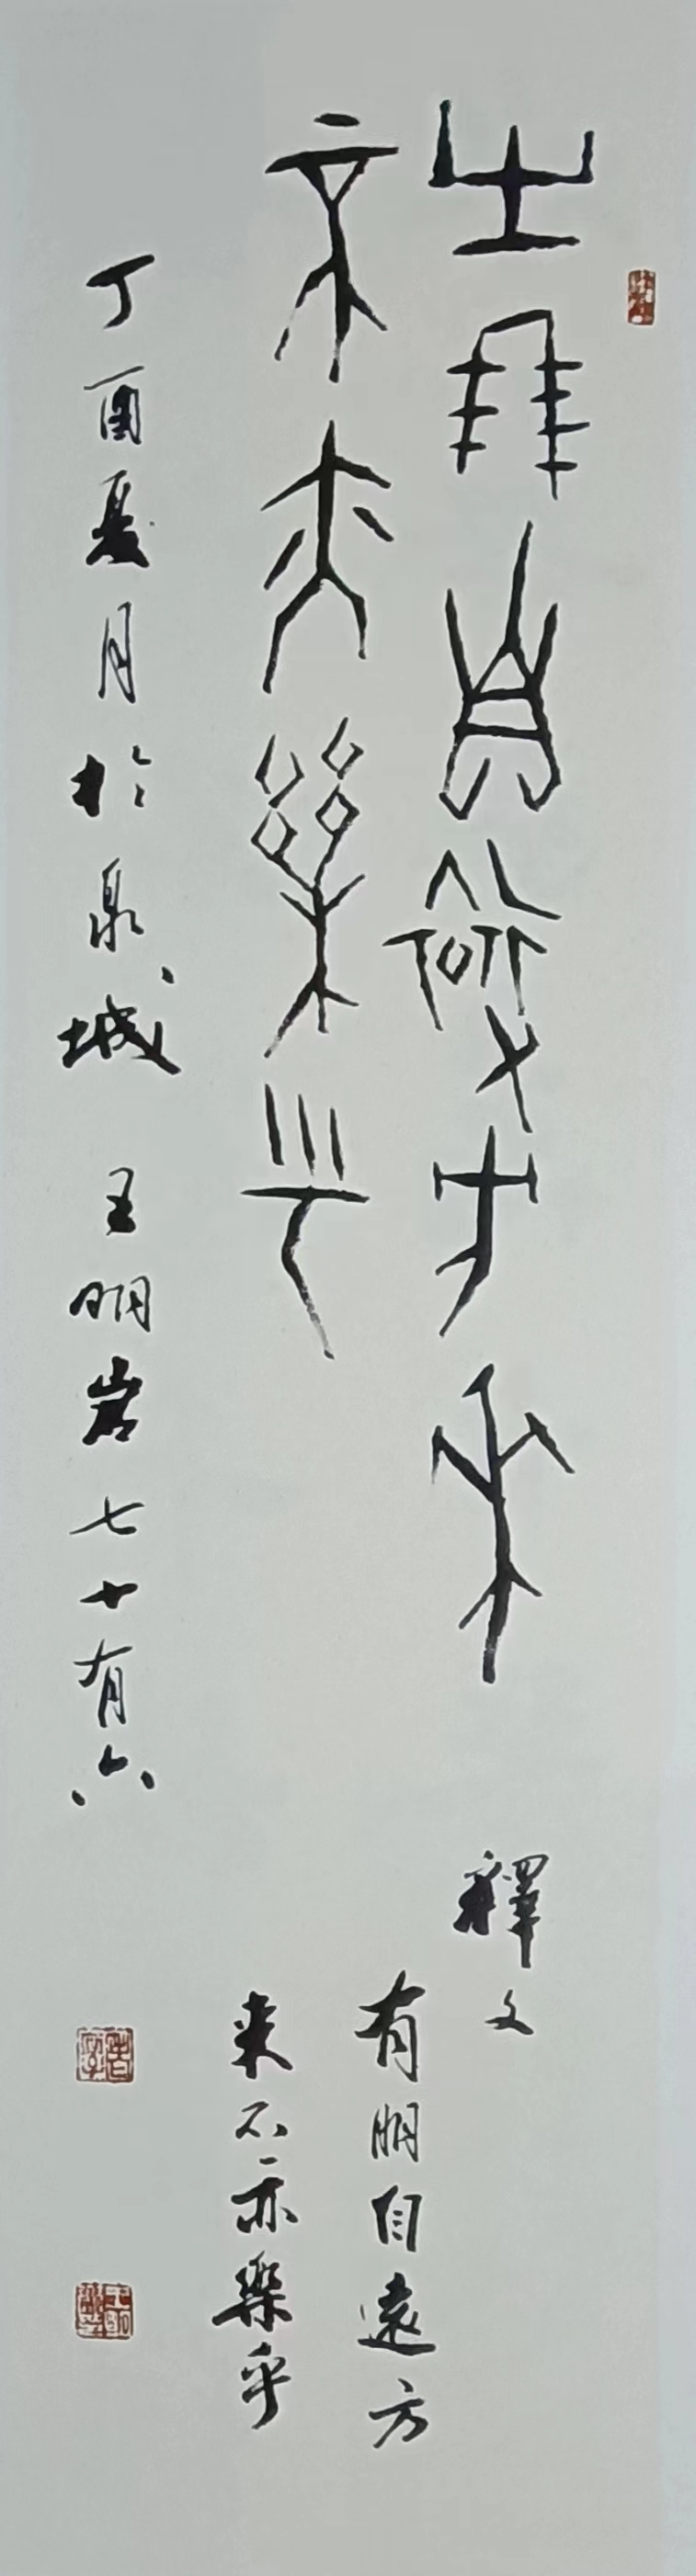 有朋自遠方来
不亦樂乎
釋文
有朋自遠方
来不亦樂乎
丁酉夏月於泉城 王明岩七十有六